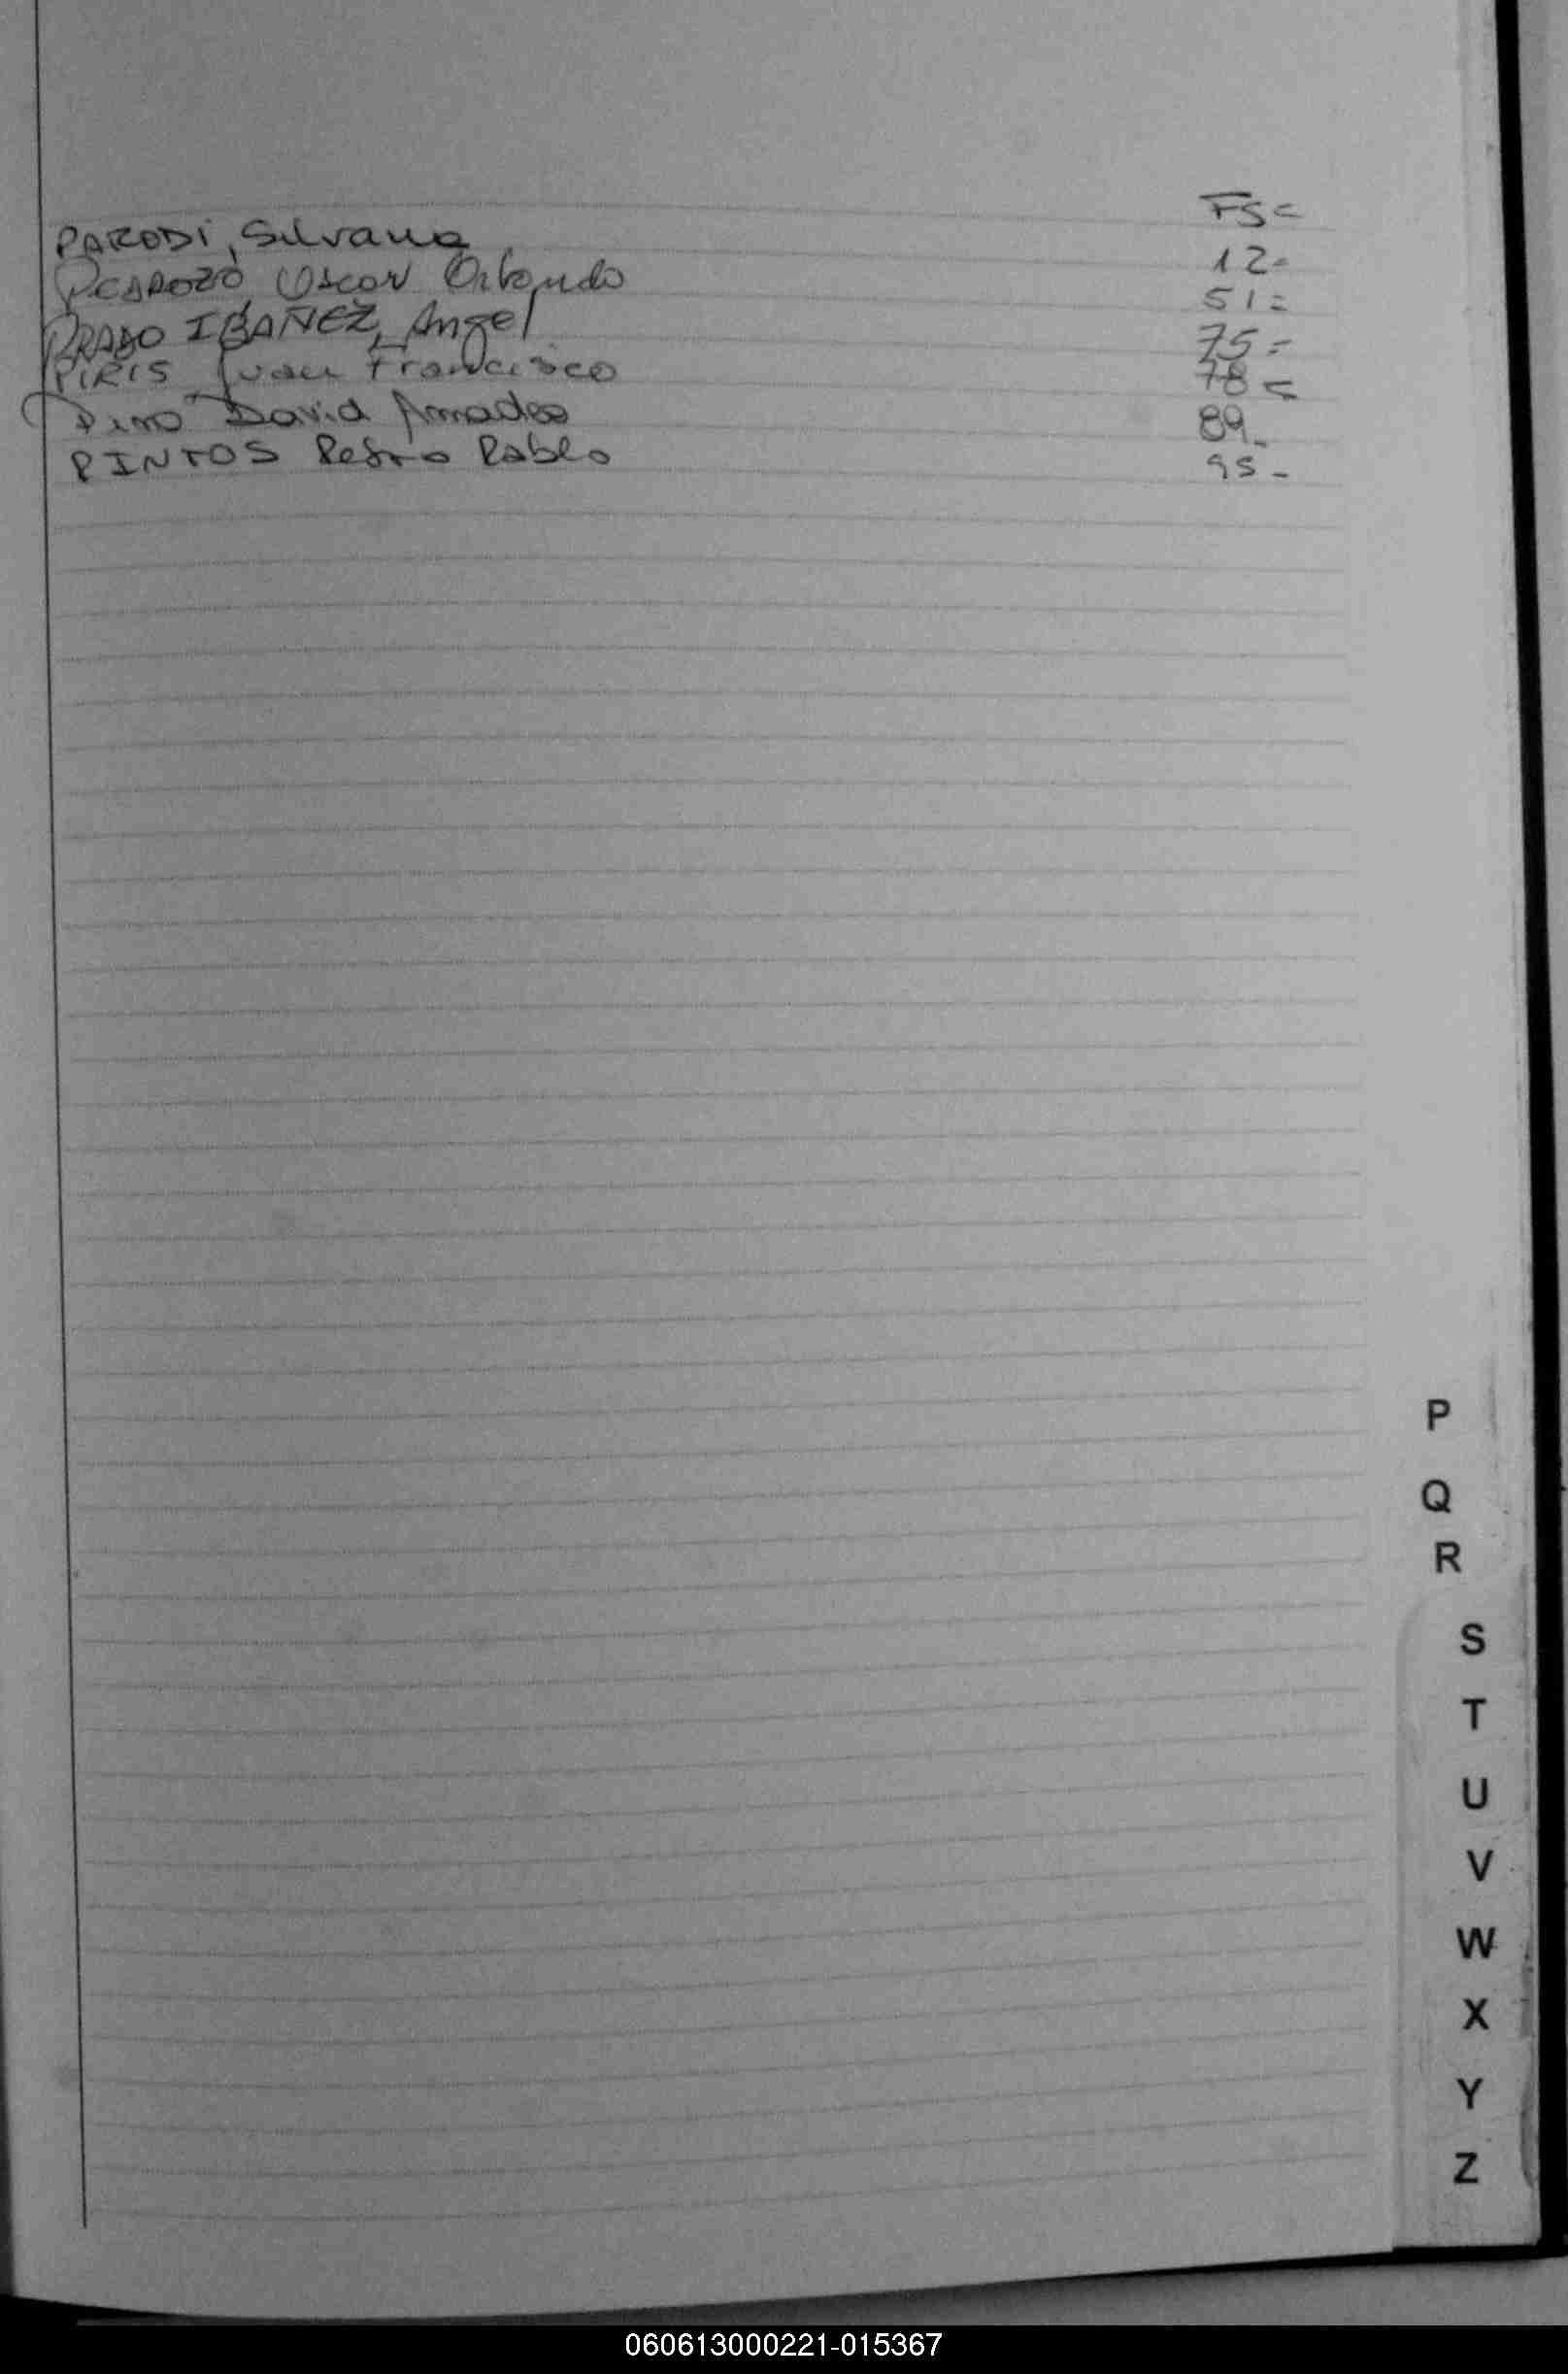 FS=
PARODI, Silvana 12-
PEDROZO Oscar Orlando 51=
PRADO IBAÑEZ, Angel 75=
PIRIS Juan Francisco 78=
Pino David Amadeo 89-
PINTOS Pedro Pablo 95-
P
Q
R
S
T
U
V
W
X
Y
Z
060613000221-015367